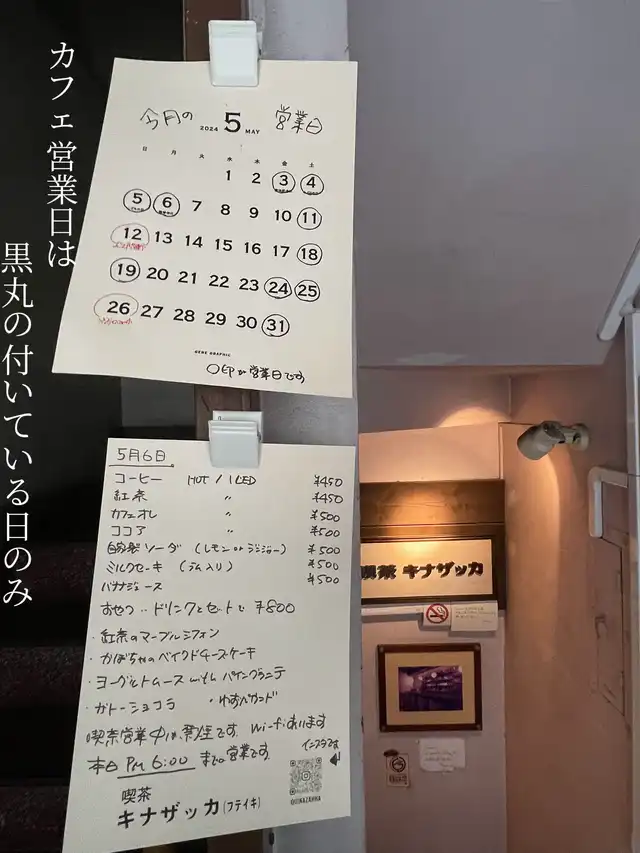 カフェ営業日は
黒丸の付いている日のみ
今月の 2024 5 MAY 営業日
日 月 火 水 木 金 土
1 2 3 4
5 6 7 8 9 10 11
12 13 14 15 16 17 18
19 20 21 22 23 24 25
26 27 28 29 30 31
〇印が営業日です
5月6日。
コーヒー HOT / ICED ¥450
紅茶 〃 ¥450
カフェオレ 〃 ¥500
ココア 〃 ¥500
自家製ソーダ (レモン or ジンジャー) ¥500
ミルクセーキ (ラム入り) ¥500
バナナジュース ¥500
おやつ‥ドリンクとセットで ¥800
・紅茶のマーブルシフォン
・かぼちゃのベイクドチーズケーキ
・ヨーグルトムース with パイングラニテ
・ガトーショコラ ・ゆずパウンド
喫茶営業中は禁煙です。 Wi-fiあります
本日 PM 6:00 までの営業です。
インスタです
喫茶
キナザッカ(フテイキ)
@KINAZAKKA
喫茶 キナザッカ